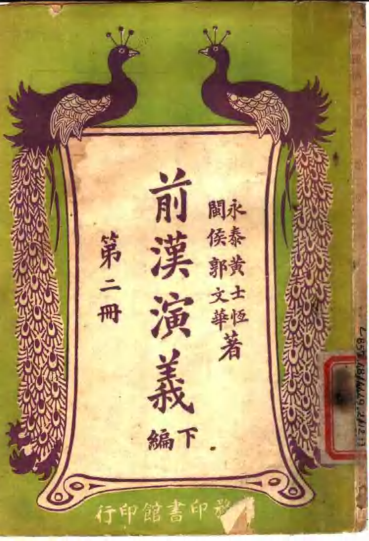 永泰黃士恆
閩侯郭文華
著
前漢演義
下編
第二冊
行印館書印務